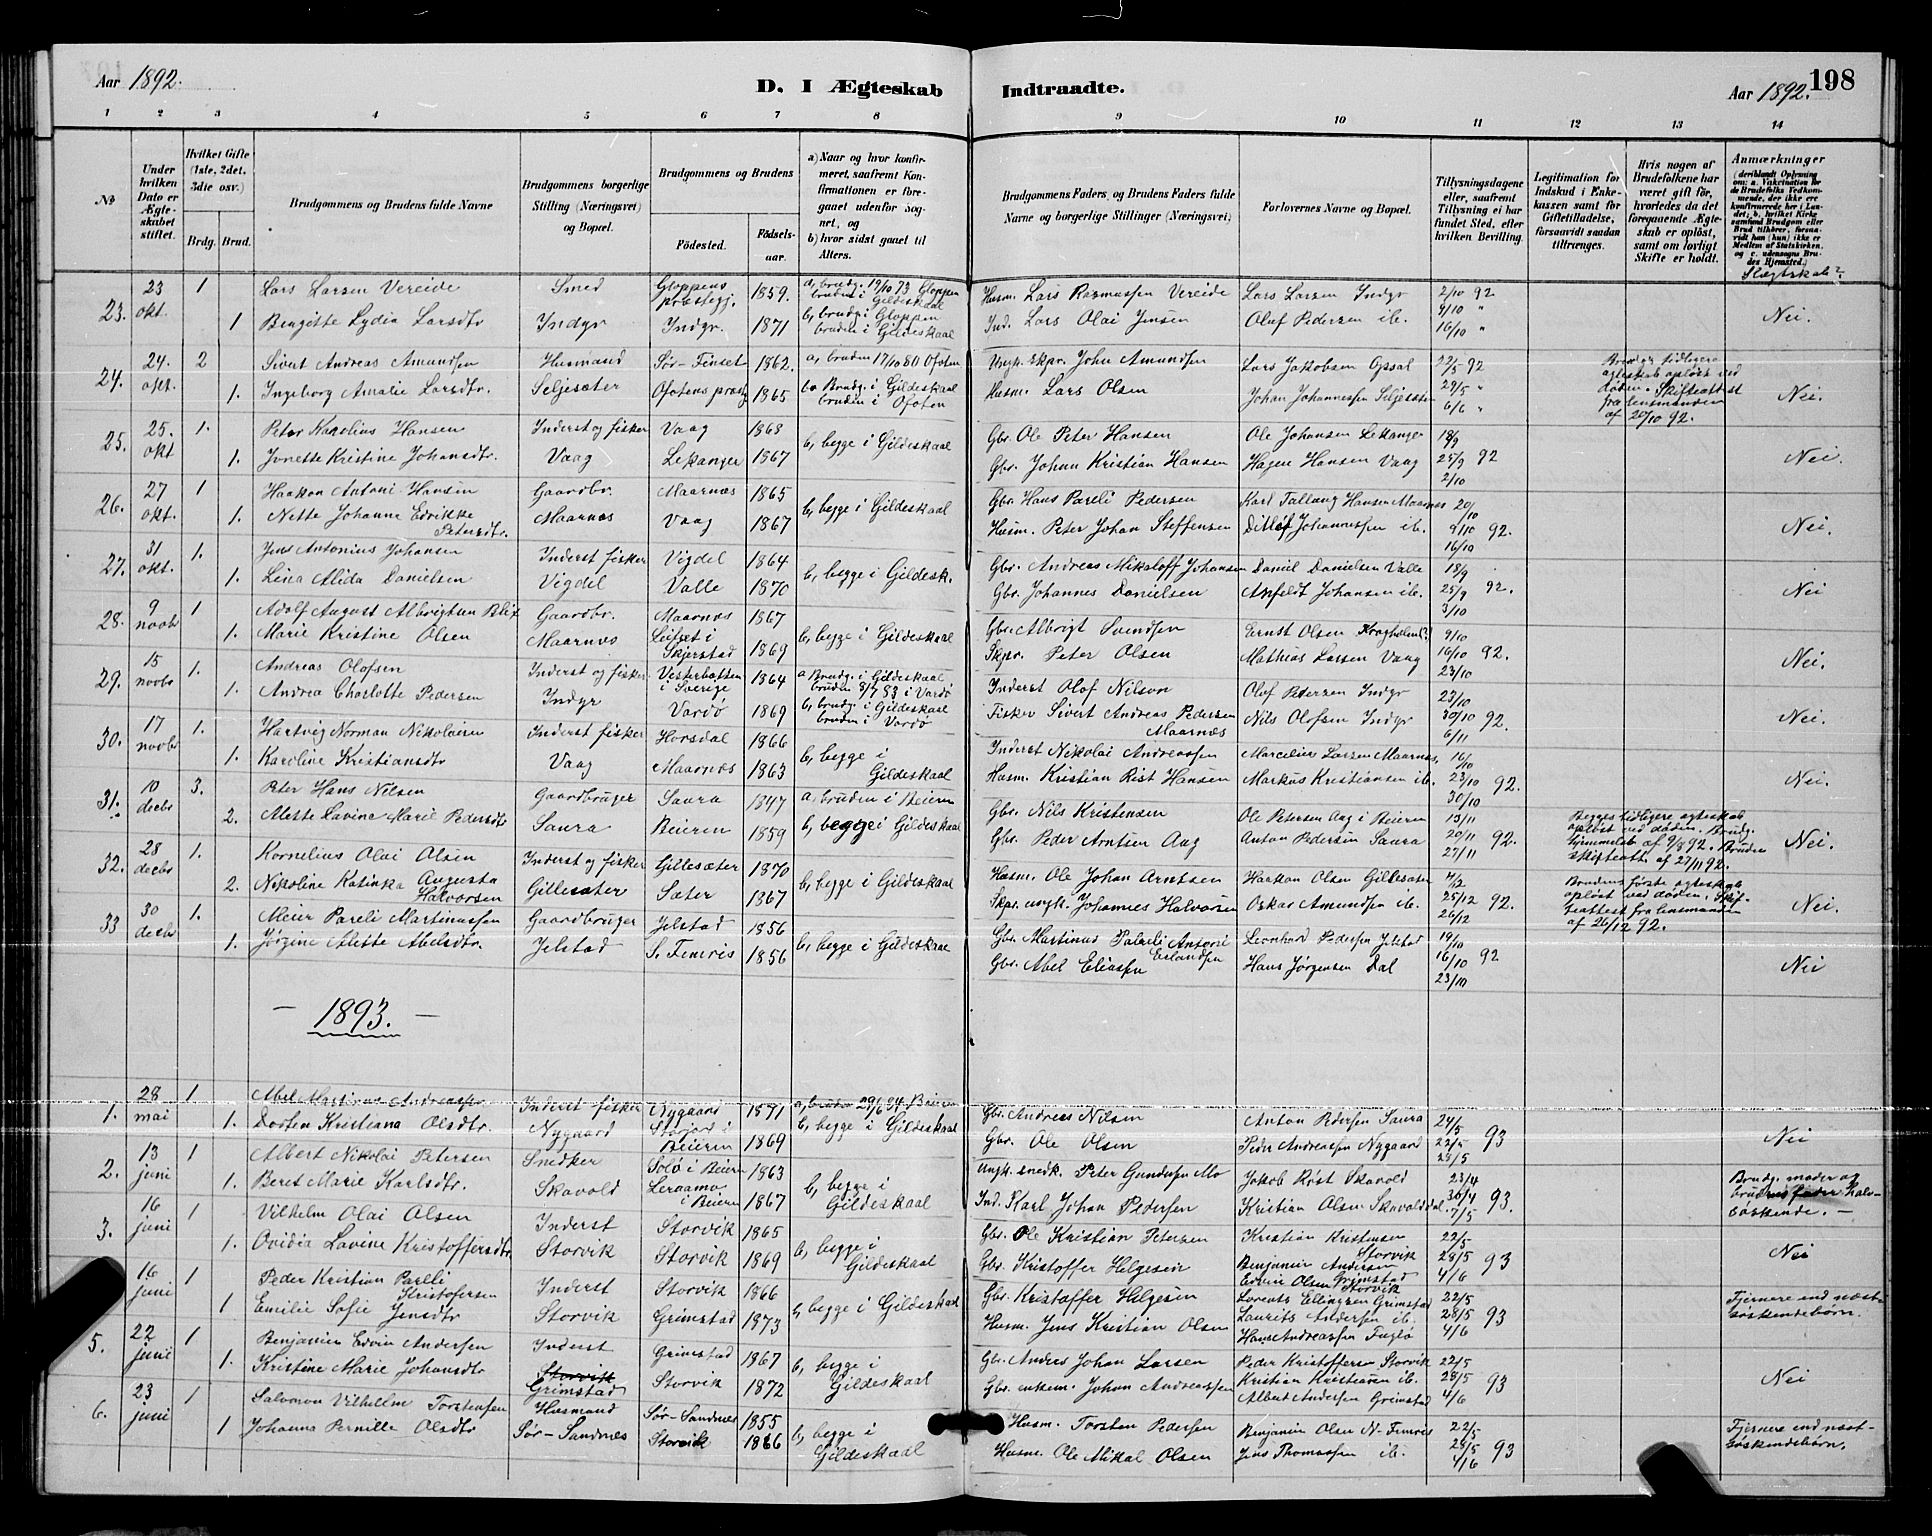 Aar 1892.
D. I Ægteskab Indtraadte.
Aar 1892.
198
1 2 3 4 5 6 7 8 9 10 11 12 13 14
№
Under hvilken Dato er Ægteskabet stiftet.
Hvilket Gifte (1ste, 2det, 3die osv.)
Brdg. Brud.
Brudgommens og Brudens fulde Navne
Brudgommens borgerlige Stilling (Næringsvei) og Bopæl.
Brudgommens og Brudens
Födested.
Födselsaar.
a) Naar og hvor konfirmeret, saafremt Konfirmationen er foregaaet udenfor Sognet, og
b) hvor sidst gaaet til Alters.
Brudgommens Faders og Brudens Faders fulde Navne og borgerlige Stillinger (Næringsvei)
Forlovernes Navne og Bopæl.
Tillysningsdagene eller, saafremt Tillysning ei har fundet Sted, efter hvilken Bevilling.
Legitimation for Indskud i Enkekassen samt for Giftetilladelse, forsaavidt saadan tiltrænges.
Hvis nogen af Brudefolkene har været gift för, hvorledes da det foregaaende Ægteskab er oplöst, samt om lovligt Skifte er holdt.
Anmærkninger (deriblandt Oplysning om: a. Vakcination for de Brudefolks Vedkommende, der ikke ere konfirmerede her i Landet; b. hvilket Kirkesamfund Brudgom eller Brud tilhörer, forsaavidt han (hun) ikke er Medlem af Statskirken. og c. udensogns Brudes Hjemsted.)
Slægtskab?
23. 23 okt. 1 Lars Larsen Vereide Smed Gloppens præstegj. 1859. a, brudg. 19/10 73 Gloppen bruden i Gildeskaal Husm. Lars Rasmussen Vereide Lars Larsen Indyr 2/10 92
1 Bergitte Lydia Larsdtr Indyr Indyr. 1871 b, brudg. i Gloppen bruden i Gildeskaal Ind. Lars Olai Jensen Oluf Pedersen ib. 9/10 " 16/10 " Nei.
24. 24. okt. 2 Sivert Andreas Amundsen Husmand Sør-Finset 1862. a, bruden 17/10 80 Ofoten Ungk. skpr. John Amundsen Lars Jakobsen Opsal 22/5 92 Brudg. tidligere ægteskab opløst ved døden. Skifteattest fra lensmanden af 20/10 92.
1. Ingeborg Amalie Larsdtr. Seljesæter Ofotens præstg 1865 b, Brudg. i Gildeskaal bruden i Ofoten Husm. Lars Olsen Johan Johannessen Seljesæter 29/5 " 6/6 " Nei.
25. 25. okt 1. Peter Karolius Hansen Inderst og fisker Vaag 1868 b, begge i Gildeskaal Gbr. Ole Peter Hansen Ole Johansen Lekanger 18/9
1. Jonette Kristine Johansdtr. Vaag Lekanger 1867 Gbr. Johan Kristian Hansen Hagen Hansen Vaag 25/9 92 2/10 Nei.
26. 27 okt. 1 Haakon Antoni Hansen Gaardbr. Maarnæs 1865 b, begge i Gildeskaal Gbr Hans Pareli Pedersen Karl Tallaug Hansen Maarnes 20/10
1. Nette Johanna Edrikke Petersdtr. Maarnæs Vaag 1867 Husm. Peter Johan Steffensen Ditlef Johannessen ib. 9/10 92. 16/10 Nei.
27. 31 okt. 1. Jens Antonius Johansen Inderst fisker Vigdel 1864 b, begge i Gildesk. Gbr. Andreas Mikaloff Johansen Daniel Danielsen Valle 18/9
1. Lina Alida Danielsen Vigdel Valle 1870 Gbr. Johannes Danielsen Anfeldt Johansen ib. 25/9 92. 3/10 Nei
28. 9 novbr 1 Adolf August Albrigtsen Blix Gaardbr. Maarnæs 1867 b, begge i Gildeskaal Gbr. Albrigt Svendsen Ernst Olsen Kragholm? 9/10
1. Marie Kristine Olsen Maarnæs Leifset i Skjerstad 1869 Skpr. Peter Olsen Mathias Larsen Vaag 16/10 92. 23/10 Nei.
29. 15 novbr 1. Andreas Olofsen Inderst og fisker Vesterbotten i Sverige 1864 a Brudg. i Gildeskaal bruden 8/7 83 i Vardø Inderst Olof Nilson Olof Pedersen Indyr 23/10
1. Andrea Charlotte Pedersen Indyr Vardø 1869 b, brudg. i Gildeskaal bruden i Vardø Fisker Sivert Andreas Pedersen Maarnæs Nils Olofsen Indyr 30/10 92. 6/11 Nei.
30. 17 novbr 1. Hartvig Norman Nikolaisen Inderst fisker Horsdal 1866 b, begge i Gildeskaal Inderst Nikolai Andreassen Marcelius Larsen Maarnes, 16/10
1. Karoline Kristiansdtr Vaag Maarnæs 1863 Husm. Kristian Rist Hansen Markus Kristiansen ib. 23/10 92. 30/10 Nei.
31. 10 decbr 3. Peter Hans Nilsen Gaardbruger Saura 1847 a, bruden i Beieren Gbr. Nils Kristensen Ole Petersen Aag i Beieren 13/11 Begges tidligere ægteskab opløst ved døden. Brudg. hjemmelab af 9/8 92. Bruden skifteatt. af 27/11 92.
2. Alette Lavine Marie Pedersdtr Saura Beieren 1859 b, begge i Gildeskaal Gbr. Peder Arntsen Aag Anton Pedersen Saura 20/11 92. 27/11 Nei.
32. 28 decbr 1. Kornelius Olai Olsen Inderst og fisker Gillesæter 1870 b, begge i Gildeskaal Husm. Ole Johan Arntsen Haakon Olsen Gillesæter 4/12 Brudens første ægteskab opløst ved døden. Skifteattest fra lensmanden af 26/12 92.
2. Nikoline Katinka Augusta Halvorsen Gillesæter Sæter 1867 Skpr. ungk. Johannes Halvorsen Oskar Amundsen ib. 25/12 92. 26/12 Nei.
33 30 decbr 1. Meier Pareli Martinussen Gaardbruger Jelstad 1856 b, begge i Gildeskaal Gbr. Martinus Pareli Antoni Erlandsen Leonhard Pedersen Jelstad 19/10
1. Jørgine Alette Abelsdtr. Jelstad S. Femris 1856 Gbr. Abel Eliassen Hans Jørgensen Dal 16/10 92 23/10 Nei
— 1893. —
1. 28 mai 1 Abel Martinus Andreassen Inderst fisker Nygaard 1871 a, bruden 29/6 84. Beieren Gbr. Andreas Nilsen Anton Pedersen Saura 24/5
1. Dorten Kristiana Olsdtr. Nygaard Storjord i Beieren 1869 b, begge i Gildeskaal Gbr. Ole Olsen Peder Andreassen Nygaard 22/5 93 28/5 Nei
2. 13 juni 1 Albert Nikolai Petersen Snedker Solø i Beieren 1863 b, begge i Gildeskaal Ungk. snedk. Peter Gundersen Mo Jakob Røst Skavold 23/4 Brudg. moder og brudens fader halvsøskende. —
1. Beret Marie Karlsdtr. Skavold Leraamo i Beieren 1867 Ind. Karl Johan Pedersen Kristian Olsen Skavolddal. 30/4 93. 7/5
3. 16 juni 1 Vilhelm Olai Olsen Inderst Storvik 1865 b, begge i Gildeskaal Gbr. Ole Kristian Petersen Kristian Kristensen Storvik 22/5
1. Ovidia Lavine Kristoffersdtr Storvik Storvik 1869 Gbr. Kristoffer Helgesen Benjamin Andersen 28/5 93 4/6 Nei
16 juni 1 Peder Kristian Pareli Kristofersen Inderst Storvik 1866 b, begge i Gildeskaal Gbr. Kristoffer Helgesen Edvin Olsen Grimstad Storvik Lorents Ellingsen Grimstad 22/5 Fjernere end næstsøskendebørn.
1 Emilie Sofie Jensdtr Storvik Grimstad 1873 Husm. Jens Kristian Olsen Laurits Andersen ib. Hans Andreassen Fuglø 28/5 93 4/6
5. 22 juni 1 Benjamin Edvin Andersen Inderst Grimstad 1867 b, begge i Gildeskaal Gbr. Andres Johan Larsen Peder Kristoffersen Storvik 22/5
1. Kristine Marie Johansdtr Storvik Grimstad Storvik 1872 Gbr. enkem. Johan Andreassen Kristian Kristensen ib. Albert Andersen Grimstad 28/5 93 4/6 Nei
6. 23 juni 1 Salomon Vilhelm Torstensen Husmand Sør-Sandnes 1855 b, begge i Gildeskaal Husm. Torsten Pedersen Benjamin Olsen N-Femris 22/5 Fjernere end næstsøskendebørn.
1 Johanna Pernille Olsdtr Sør-Sandnæs Storvik 1866 Husm. Ole Mikal Olsen Jens Thomassen ib. 28/5 93 4/6